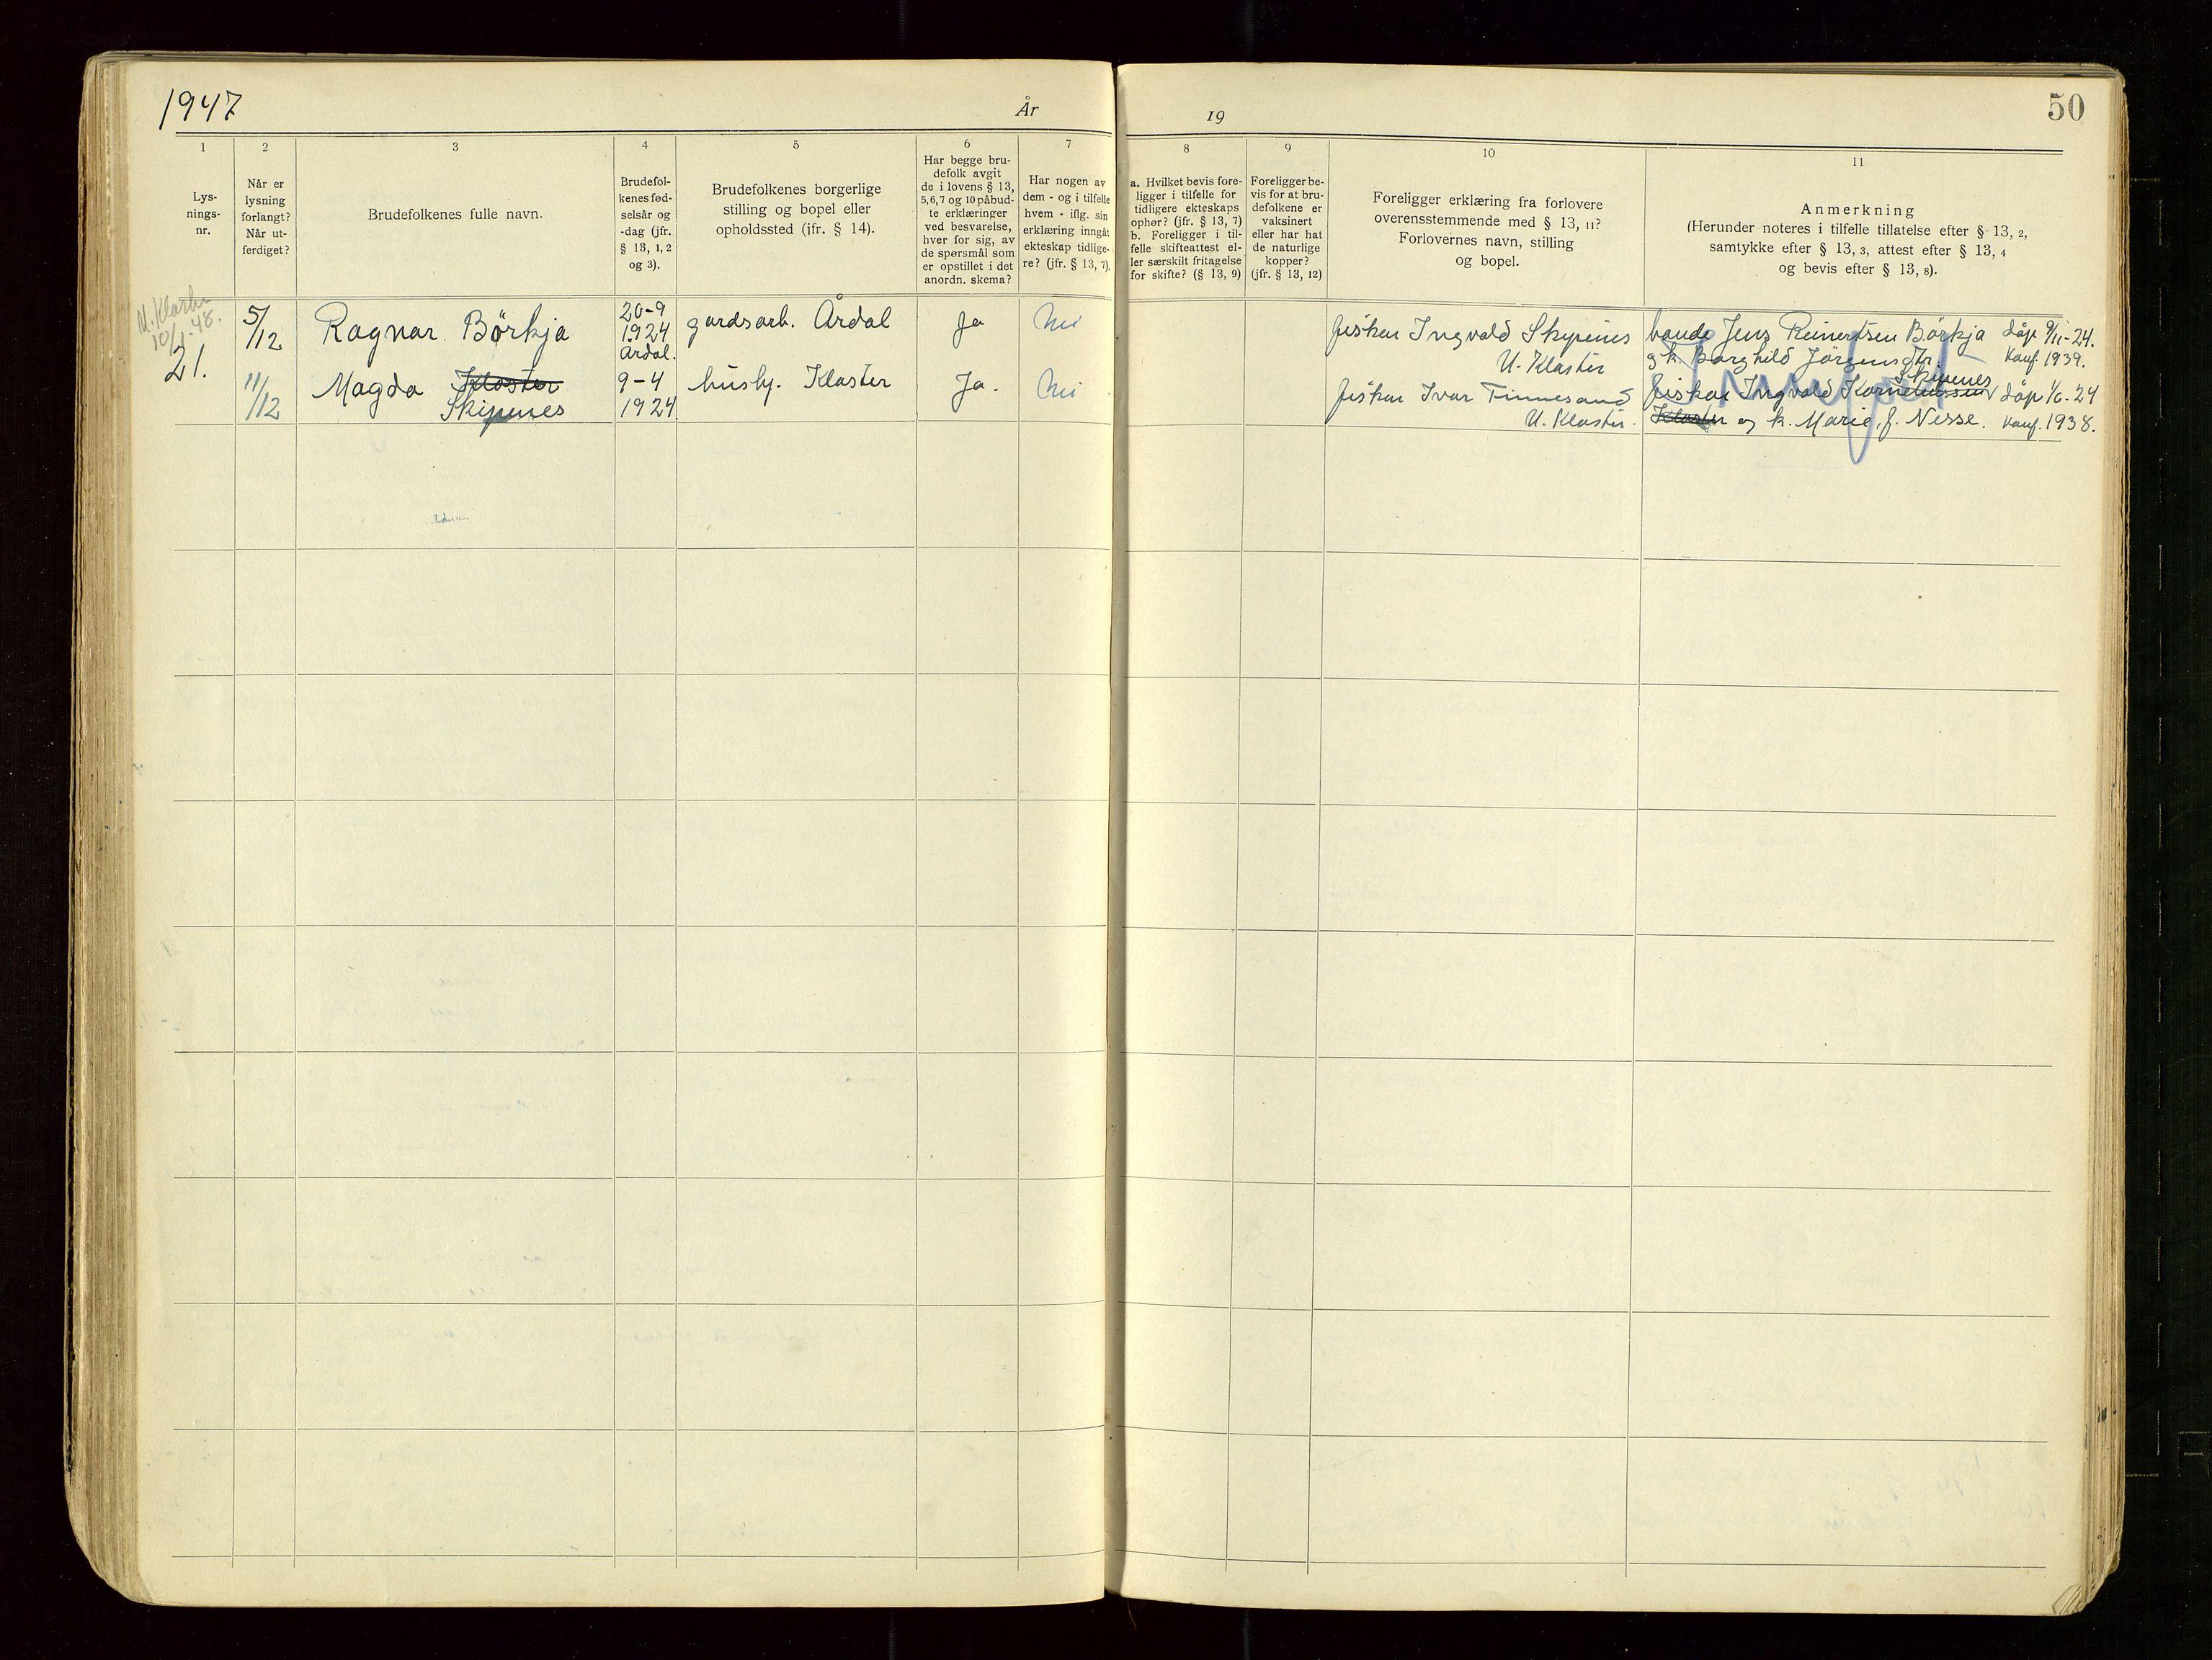 1947
År
19
50
1
2
3
4
5
6
7
8
9
10
11
Lys-
nings-
nr.
Når er
lysning
forlangt?
Når ut-
ferdiget?
Brudefolkenes fulle navn.
Brudefol-
kenes fød-
selsår og
-dag (jfr.
§ 13, 1, 2
og 3).
Brudefolkenes borgerlige
stilling og bopel eller
opholdssted (jfr. § 14).
Har begge bru-
defolk avgit
de i lovens § 13,
5,6,7 og 10 påbud-
te erklæringer
ved besvarelse,
hver for sig, av
de spørsmål som
er opstillet i det
anordn. skema?
Har nogen av
dem - og i tilfelle
hvem - iflg. sin
erklæring inngåt
ekteskap tidlige-
re? (jfr. § 13, 7).
a. Hvilket bevis fore-
ligger i tilfelle for
tidligere ekteskaps
ophør? (jfr. § 13, 7)
b. Foreligger i til-
felle skifteattest el-
ler særskilt fritagelse
for skifte? (§ 13, 9)
Foreligger be-
vis for at bru-
defolkene er
vaksinert
eller har hat
de naturlige
kopper?
(jfr. § 13, 12)
Foreligger erklæring fra forlovere
overensstemmende med § 13, 11?
Forlovernes navn, stilling
og bopel.
Anmerkning
(Herunder noteres i tilfelle tillatelse efter § 13, 2,
samtykke efter § 13, 3, attest efter § 13, 4
og bevis efter § 13, 8).
10/1-48.
21.
5/12
Ragnar Börkja
20-9
1924
Årdal.
gardsarb. Årdal
Ja
Nei
fisker Ingvald Skipenes
U. Kloster
bonde Jens Reinertsen Börkja döpt 9/11-24.
og k. Borghild Jörgensdtr. konf. 1939.
11/12
Magda Kloster
Skipenes
9-4
1924
husly. Kloster
Ja.
Nei
fisker Ivar Finnesand
U. Kloster.
Skipenes
fisker Ingvald Korneliussen döpt 1/6-24
Kloster og k. Marie, f. Nesse. konf. 1938.